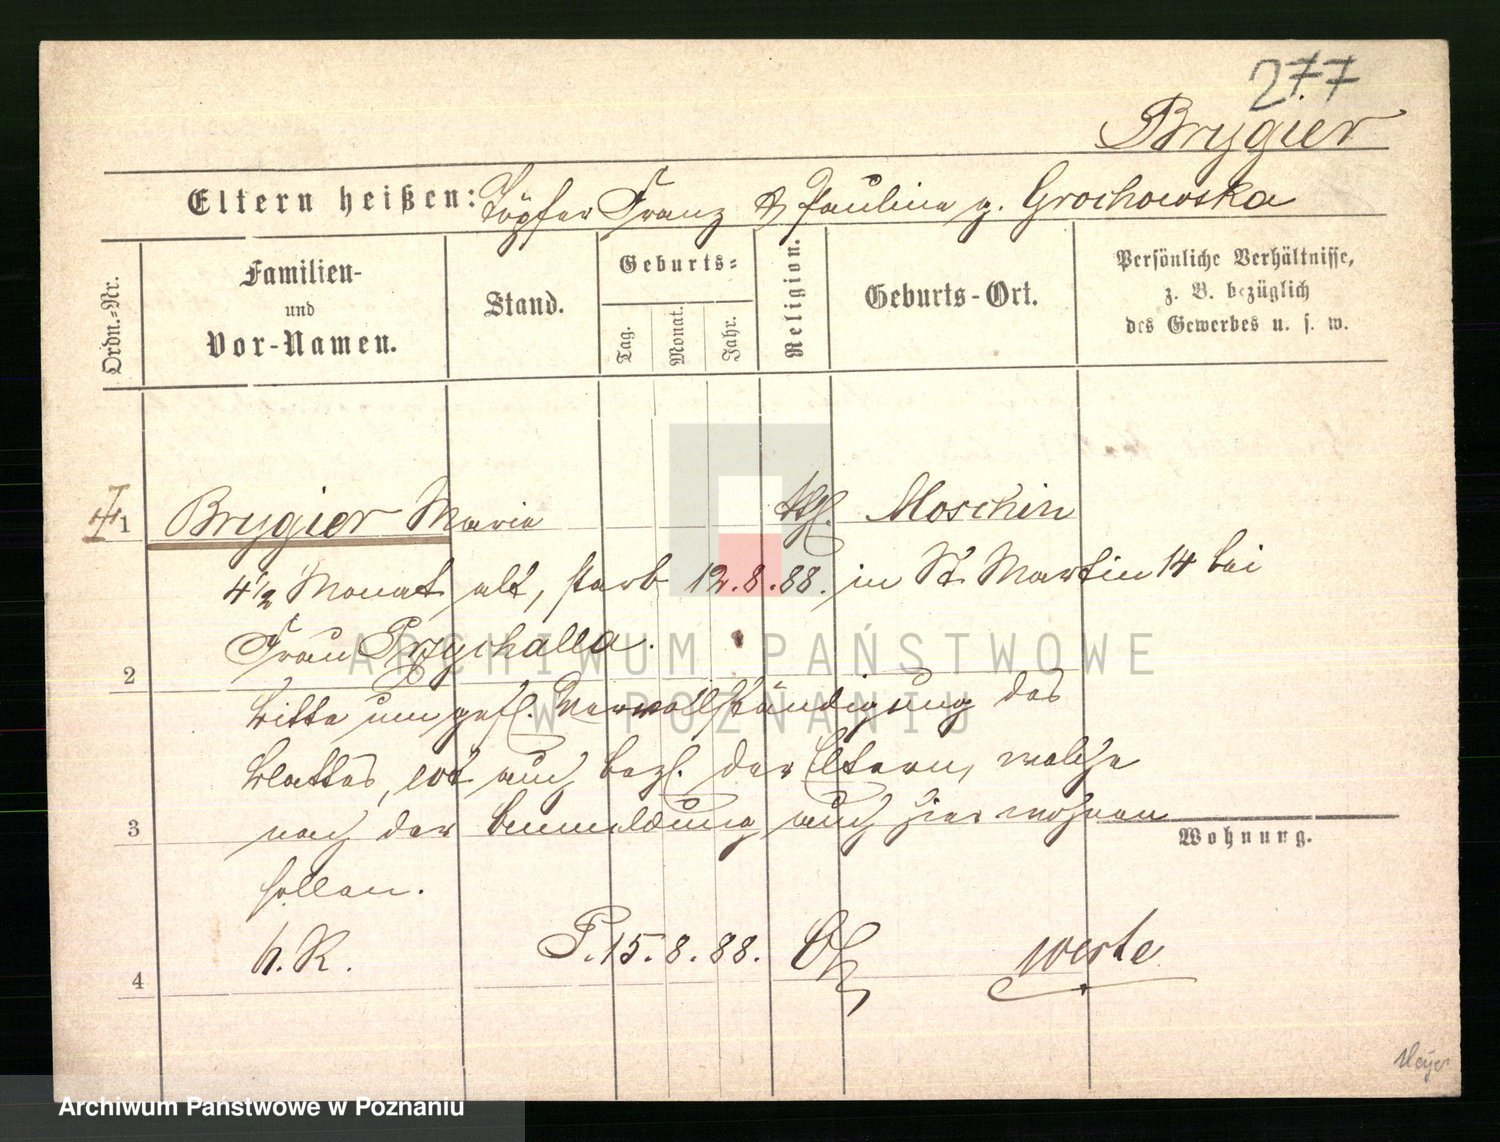 277
Brygier
Eltern heißen: Töpfer Franz & Pauline g. Grochowska
Ordn.-Nr.
Familien-
und
Vor-Namen.
Stand.
Geburts-
Tag.
Monat.
Jahr.
Religion.
Geburts-Ort.
Persönliche Verhältnisse,
z. B. bezüglich
des Gewerbes u. s. w.
1 Brygier Marie kth. Moschin
4 1/2 Monat alt, starb 12.8.88. in St. Martin 14 bei
Frau Przychalla.
2
bitte um gefl. Vervollständigung des
Blattes, evt. auch bezl. der Eltern, welche
nach der Anmeldung auch hier wohnen
3
Wohnung.
sollen.
h. R. P. 15.8.88.
4
Meyer
ARCHIWUM PAŃSTWOWE
W POZNANIU
Archiwum Państwowe w Poznaniu